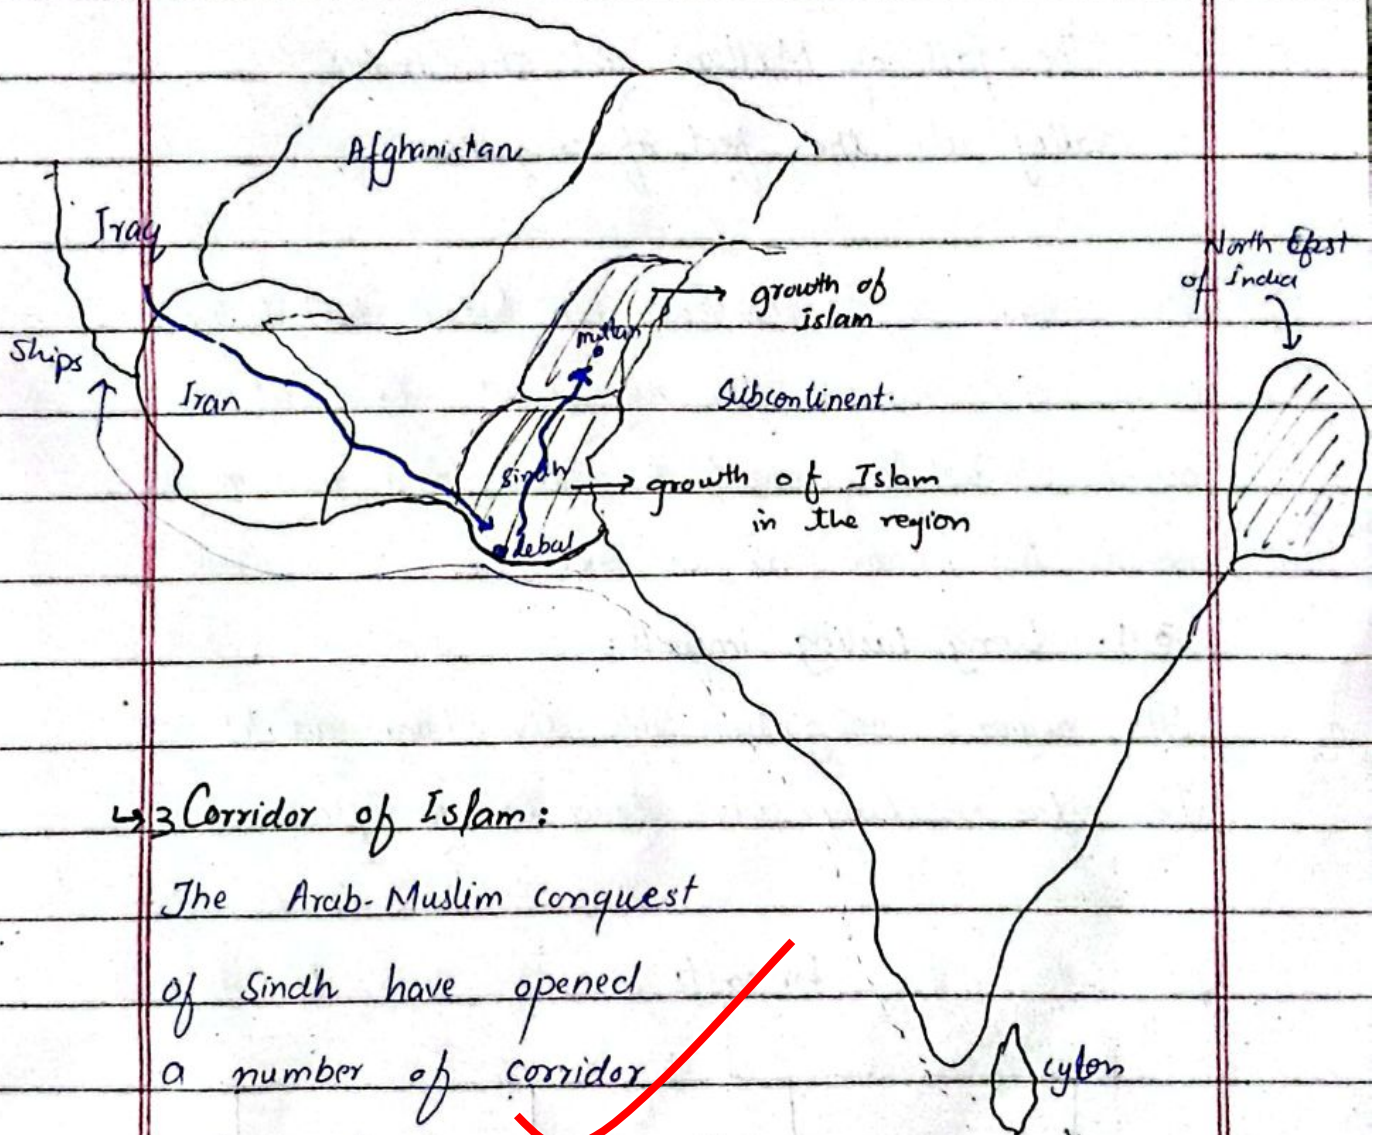 Afghanistan
Iraq
North East
of India
growth of
islam
multan
Ships
Iran
Subcontinent.
Sindh
growth of Islam
in the region
debal
↳3 Corridor of Islam:
The Arab-Muslim conquest
of Sindh have opened
a number of corridor
cylon